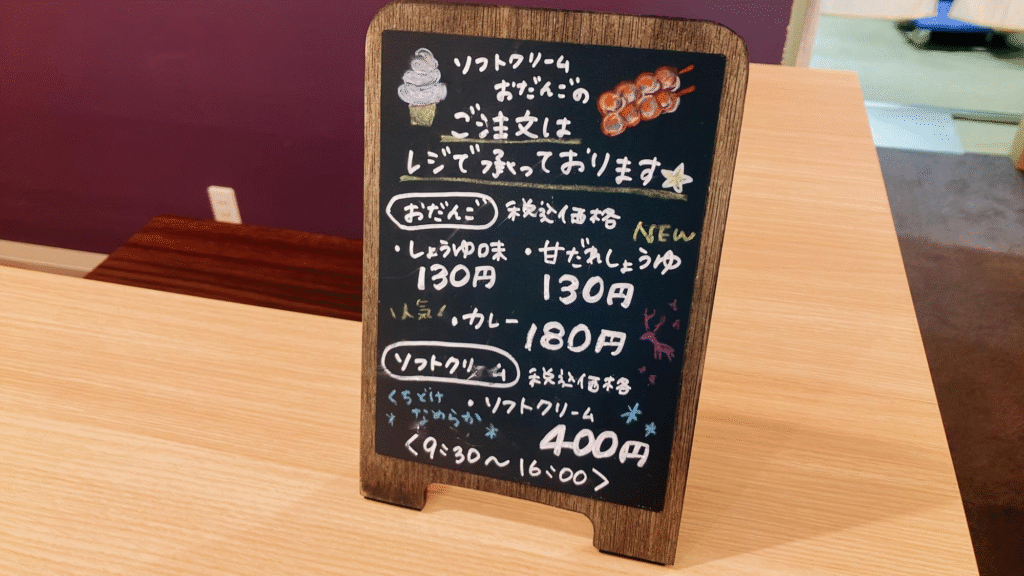 ソフトクリーム
おだんごの
ご注文は
レジで承っております
おだんご 税込価格
NEW
・しょうゆ味 ・甘だれしょうゆ
130円 130円
人気
・カレー 180円
ソフトクリーム 税込価格
くちどけ
なめらか
・ソフトクリーム
400円
<9:30～16:00>